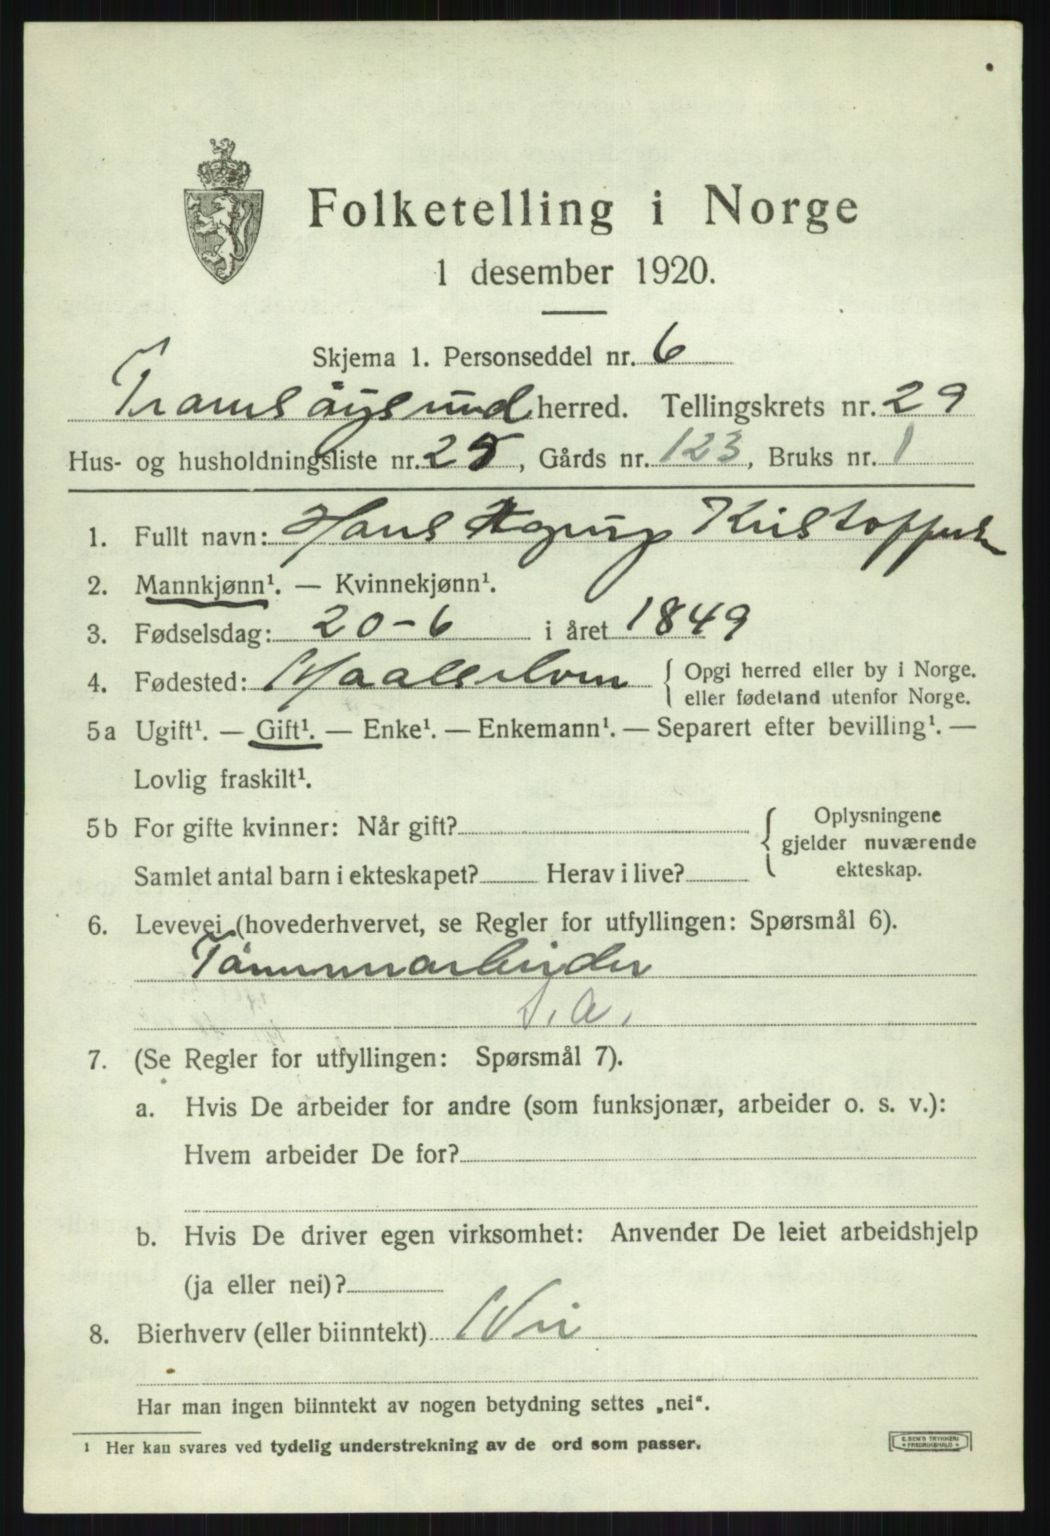 Folketelling i Norge
1 desember 1920.
Skjema 1. Personseddel nr. 6
Tromsöysund herred. Tellingskrets nr. 29
Hus- og husholdningsliste nr. 25, Gårds nr. 123, Bruks nr. 1
1. Fullt navn: Hans Agrup Kristoffersen
2. Mannkjønn¹. — Kvinnekjønn¹.
3. Fødselsdag: 20-6 i året 1849
4. Fødested: Maalselven { Opgi herred eller by i Norge.
eller fødeland utenfor Norge.
5a Ugift¹. — Gift¹. — Enke¹. — Enkemann¹. — Separert efter bevilling¹. —
Lovlig fraskilt¹.
5b For gifte kvinner: Når gift? { Oplysningene
gjelder nuværende
Samlet antal barn i ekteskapet? Herav i live? ekteskap.
6. Levevei (hovederhvervet, se Regler for utfyllingen: Spørsmål 6).
Tömmerarbeider
S. a.
7. (Se Regler for utfyllingen: Spørsmål 7).
a. Hvis De arbeider for andre (som funksjonær, arbeider o. s. v.):
Hvem arbeider De for?
b. Hvis De driver egen virksomhet: Anvender De leiet arbeidshjelp
(ja eller nei)?
8. Bierhverv (eller biinntekt) Nei
Har man ingen biinntekt av nogen betydning settes „nei".
¹ Her kan svares ved tydelig understrekning av de ord som passer.